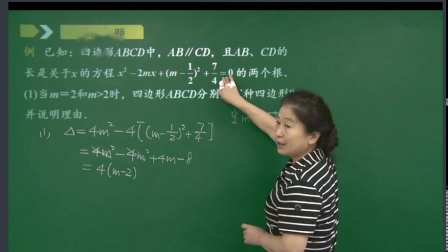 例 已知：四边形ABCD中，AB∥CD，且AB、CD的
长是关于x的方程 x²－2mx＋(m－1/2)²＋7/4＝0的两个根.
(1)当m＝2和m>2时，四边形ABCD分别 种四边形？
并说明理由.
(1) Δ＝4m²－4[(m－1/2)²＋7/4]
＝4m²－4m²＋4m－8
＝4(m－2)